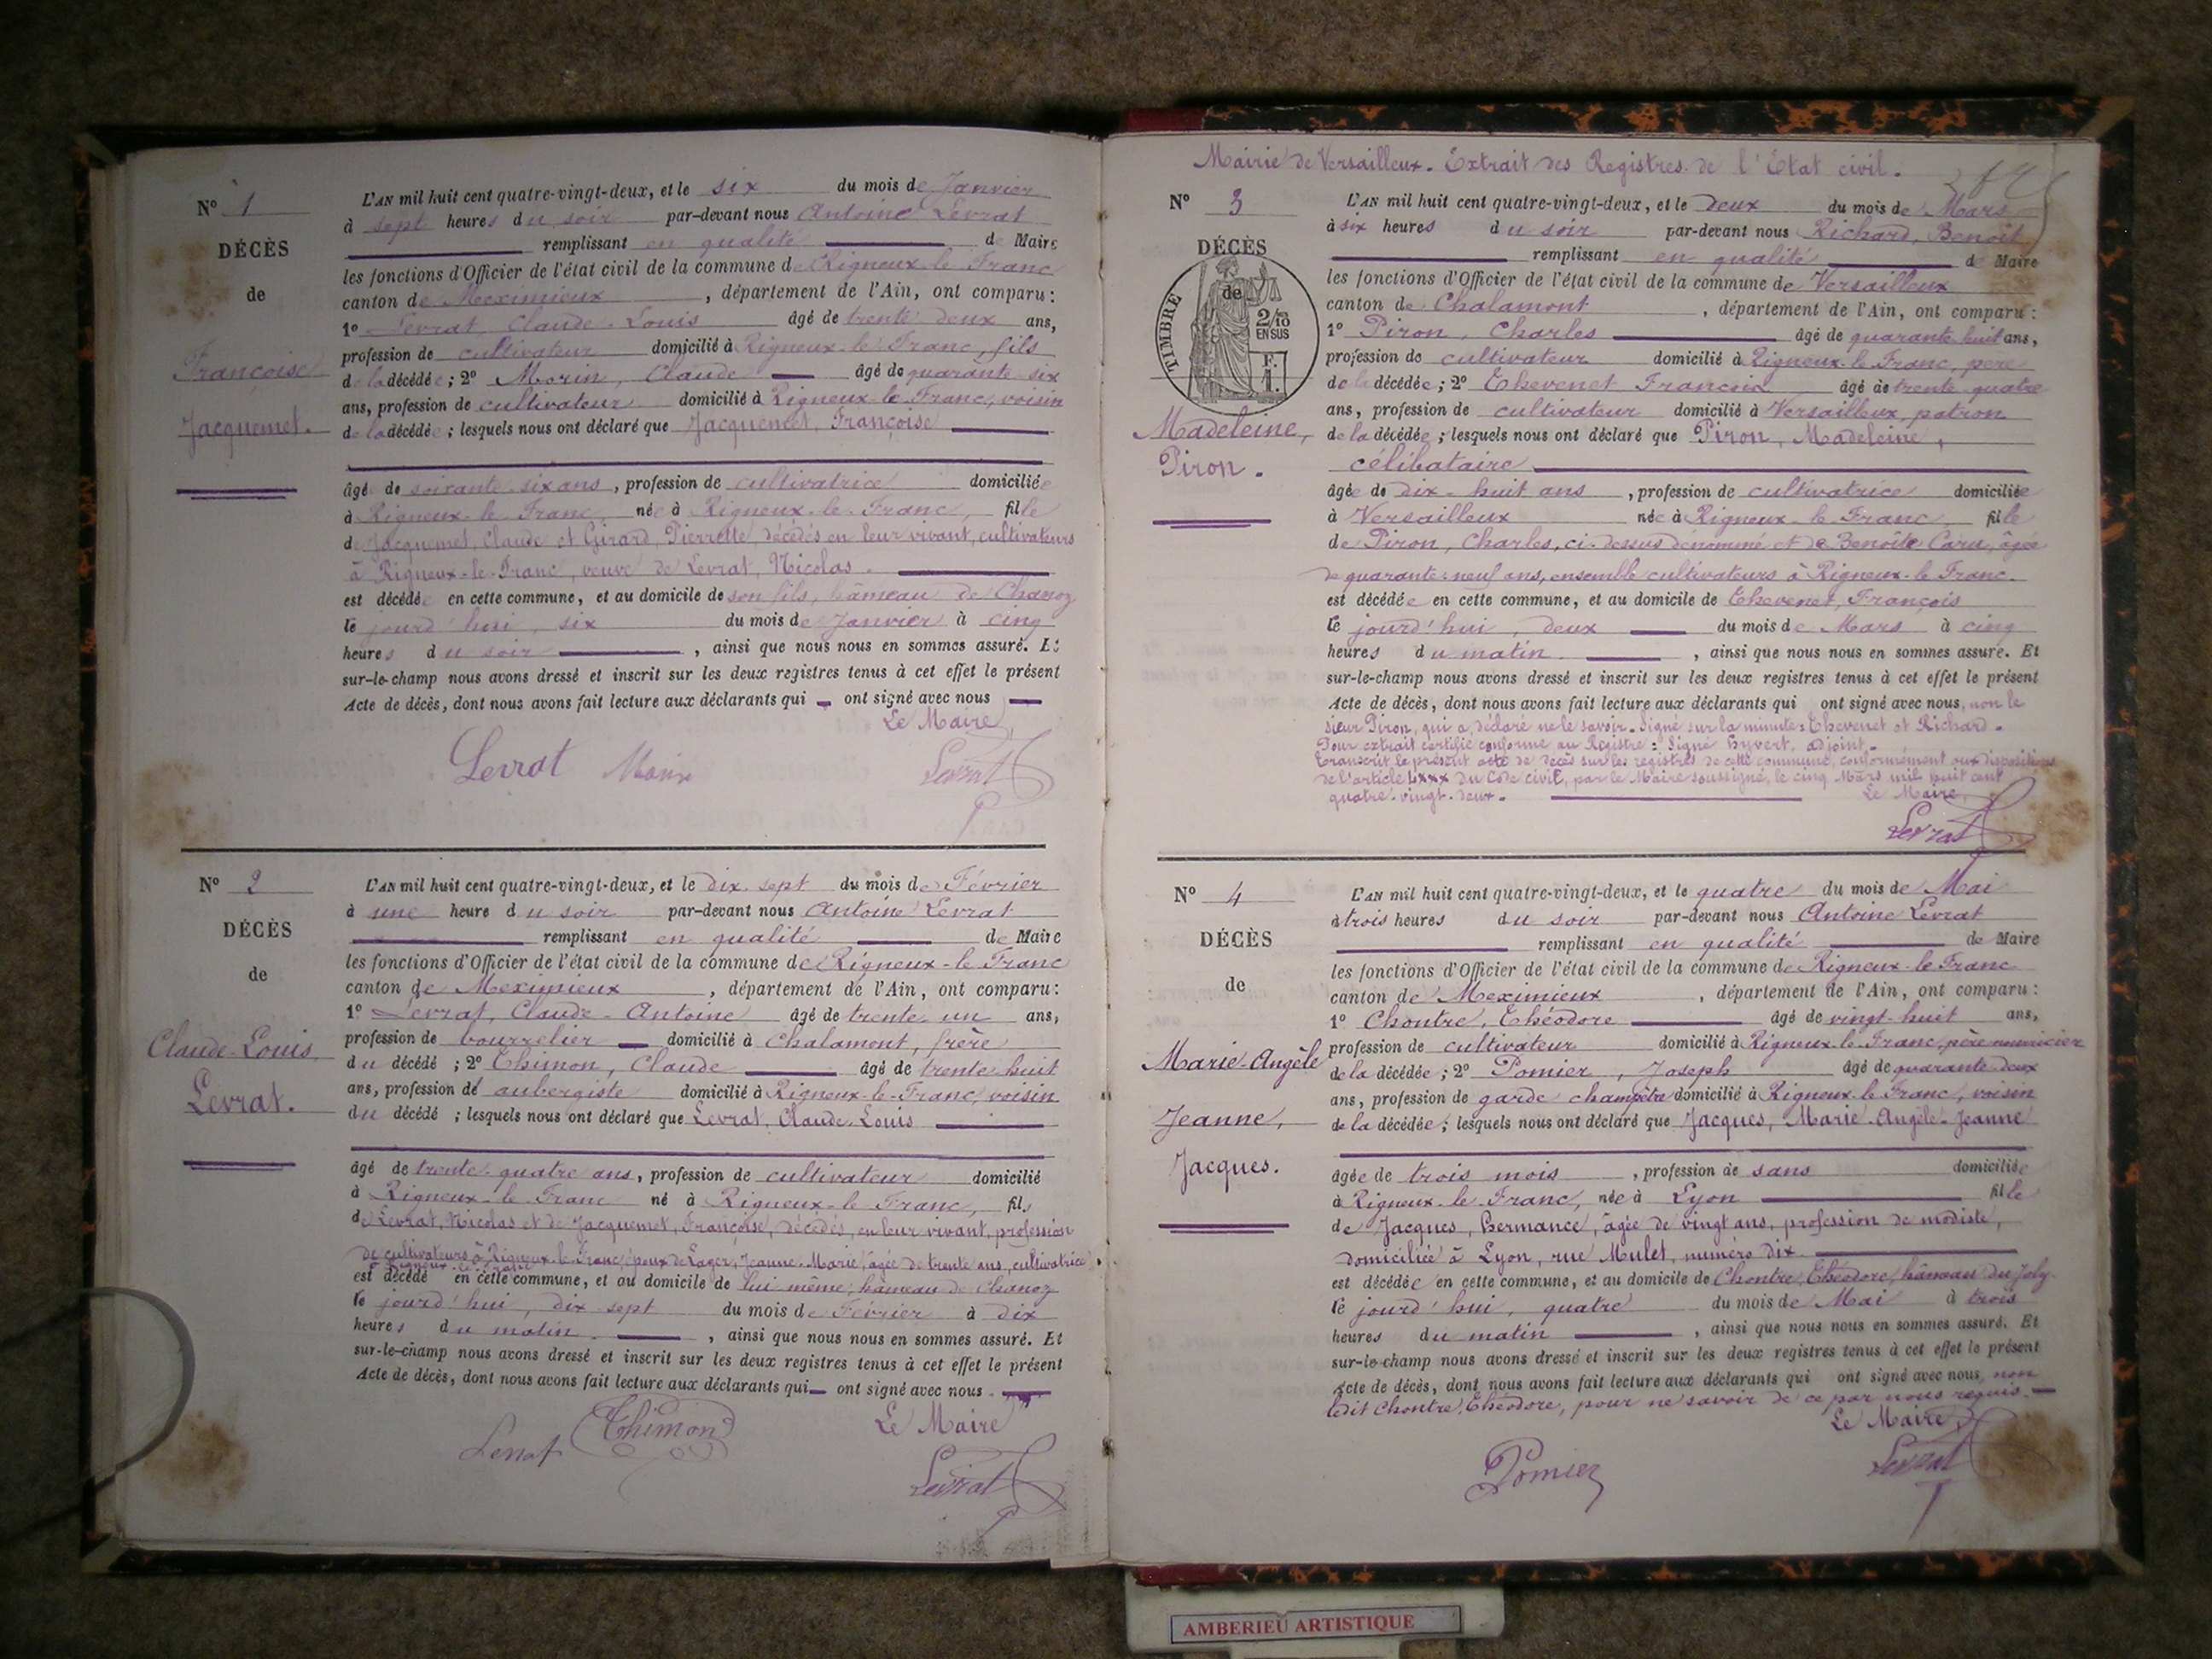 N° 1
DÉCÈS
de
Françoise
Jacquemet.
L'AN mil huit cent quatre-vingt-deux, et le six du mois de Janvier
à sept heures du soir par-devant nous Antoine Levrat
remplissant en qualité de Maire
les fonctions d'Officier de l'état civil de la commune de Rigneux-le-Franc
canton de Meximieux, département de l'Ain, ont comparu:
1° Levrat, Claude-Louis âgé de trente deux ans,
profession de cultivateur domicilié à Rigneux-le-Franc, fils
de la décédée; 2° Morin, Claude âgé de quarante-six
ans, profession de cultivateur domicilié à Rigneux-le-Franc, voisin
de la décédée; lesquels nous ont déclaré que Jacquemet, Françoise
âgé de soixante-six ans, profession de cultivatrice domiciliée
à Rigneux-le-Franc, née à Rigneux-le-Franc, fille
de Jacquemet, Claude et Girard, Pierrette, décédés en leur vivant, cultivateurs
à Rigneux-le-Franc, veuve de Levrat, Nicolas.
est décédée en cette commune, et au domicile de son fils, hameau de Chanoz
le jourd'hui, six du mois de Janvier à cinq
heures du soir, ainsi que nous nous en sommes assuré. Et
sur-le-champ nous avons dressé et inscrit sur les deux registres tenus à cet effet le présent
Acte de décès, dont nous avons fait lecture aux déclarants qui ont signé avec nous
Le Maire
Levrat Morin Levrat
N° 2
DÉCÈS
de
Claude-Louis
Levrat.
L'AN mil huit cent quatre-vingt-deux, et le dix-sept du mois de Février
à une heure du soir par-devant nous Antoine Levrat
remplissant en qualité de Maire
les fonctions d'Officier de l'état civil de la commune de Rigneux-le-Franc
canton de Meximieux, département de l'Ain, ont comparu:
1° Levrat, Claude-Antoine âgé de trente-un ans,
profession de bourrelier domicilié à Chalamont, frère
du décédé; 2° Thimon, Claude âgé de trente-huit
ans, profession de aubergiste domicilié à Rigneux-le-Franc, voisin
du décédé; lesquels nous ont déclaré que Levrat, Claude-Louis
âgé de trente-quatre ans, profession de cultivateur domicilié
à Rigneux-le-Franc né à Rigneux-le-Franc, fils
de Levrat, Nicolas et de Jacquemet, Françoise, décédés, en leur vivant, profession
de cultivateurs à Rigneux-le-Franc, époux de Lager, Jeanne-Marie, âgée de trente ans, cultivatrice
à Rigneux-le-Franc
est décédé en cette commune, et au domicile de lui même, hameau de Chanoz
le jourd'hui, dix-sept du mois de Février à dix
heures du matin, ainsi que nous nous en sommes assuré. Et
sur-le-champ nous avons dressé et inscrit sur les deux registres tenus à cet effet le présent
Acte de décès, dont nous avons fait lecture aux déclarants qui ont signé avec nous.
Le Maire
Levrat Thimon Levrat
Mairie de Versailleux. Extrait des Registres de l'Etat civil.
N° 3
DÉCÈS
de
TIMBRE
2/10
EN SUS
F.
1.
Madeleine,
Piron.
L'AN mil huit cent quatre-vingt-deux, et le deux du mois de Mars
à six heures du soir par-devant nous Richard, Benoît
remplissant en qualité de Maire
les fonctions d'Officier de l'état civil de la commune de Versailleux
canton de Chalamont, département de l'Ain, ont comparu:
1° Piron, Charles âgé de quarante-huit ans,
profession de cultivateur domicilié à Rigneux-le-Franc, père
de la décédée; 2° Thevenet François âgé de trente-quatre
ans, profession de cultivateur domicilié à Versailleux, patron
de la décédée; lesquels nous ont déclaré que Piron, Madeleine,
célibataire
âgée de dix-huit ans, profession de cultivatrice domiciliée
à Versailleux née à Rigneux-le-Franc fille
de Piron, Charles, ci-dessus dénommé et de Benoîte Caru, âgée
de quarante-neuf ans, ensemble cultivateurs à Rigneux-le-Franc.
est décédée en cette commune, et au domicile de Thevenet, François
le jourd'hui, deux du mois de Mars à cinq
heures du matin, ainsi que nous nous en sommes assuré. Et
sur-le-champ nous avons dressé et inscrit sur les deux registres tenus à cet effet le présent
Acte de décès, dont nous avons fait lecture aux déclarants qui ont signé avec nous, non le
sieur Piron, qui a déclaré ne le savoir. Signé sur la minute: Thevenet et Richard.
Pour extrait certifié conforme au Registre: Signé Hyvert, adjoint.
Transcrit le présent acte de décès sur les registres de cette commune, conformément aux dispositions
de l'article Lxxx du Code civil, par le Maire soussigné, le cinq Mars mil huit cent
quatre-vingt-deux. Le Maire,
Levrat
N° 4
DÉCÈS
de
Marie-Angèle
Jeanne,
Jacques.
L'AN mil huit cent quatre-vingt-deux, et le quatre du mois de Mai
à trois heures du soir par-devant nous Antoine Levrat
remplissant en qualité de Maire
les fonctions d'Officier de l'état civil de la commune de Rigneux-le-Franc
canton de Meximieux, département de l'Ain, ont comparu:
1° Chontre, Théodore âgé de vingt-huit ans,
profession de cultivateur domicilié à Rigneux-le-Franc, père nourricier
de la décédée; 2° Pomier, Joseph âgé de quarante-deux
ans, profession de garde champêtre domicilié à Rigneux-le-Franc, voisin
de la décédée; lesquels nous ont déclaré que Jacques, Marie-Angèle-Jeanne
âgée de trois mois, profession de sans domiciliée
à Rigneux-le-Franc, née à Lyon fille
de Jacques, Hermance, âgée de vingt ans, profession de modiste,
domiciliée à Lyon, rue Mulet, numéro dix.
est décédée en cette commune, et au domicile de Chontre, Théodore, hameau du Joly
le jourd'hui, quatre du mois de Mai à trois
heures du matin, ainsi que nous nous en sommes assuré. Et
sur-le-champ nous avons dressé et inscrit sur les deux registres tenus à cet effet le présent
Acte de décès, dont nous avons fait lecture aux déclarants qui ont signé avec nous, non
ledit Chontre, Théodore, pour ne savoir de ce par nous requis.
Le Maire,
Pomier Levrat
AMBERIEU ARTISTIQUE